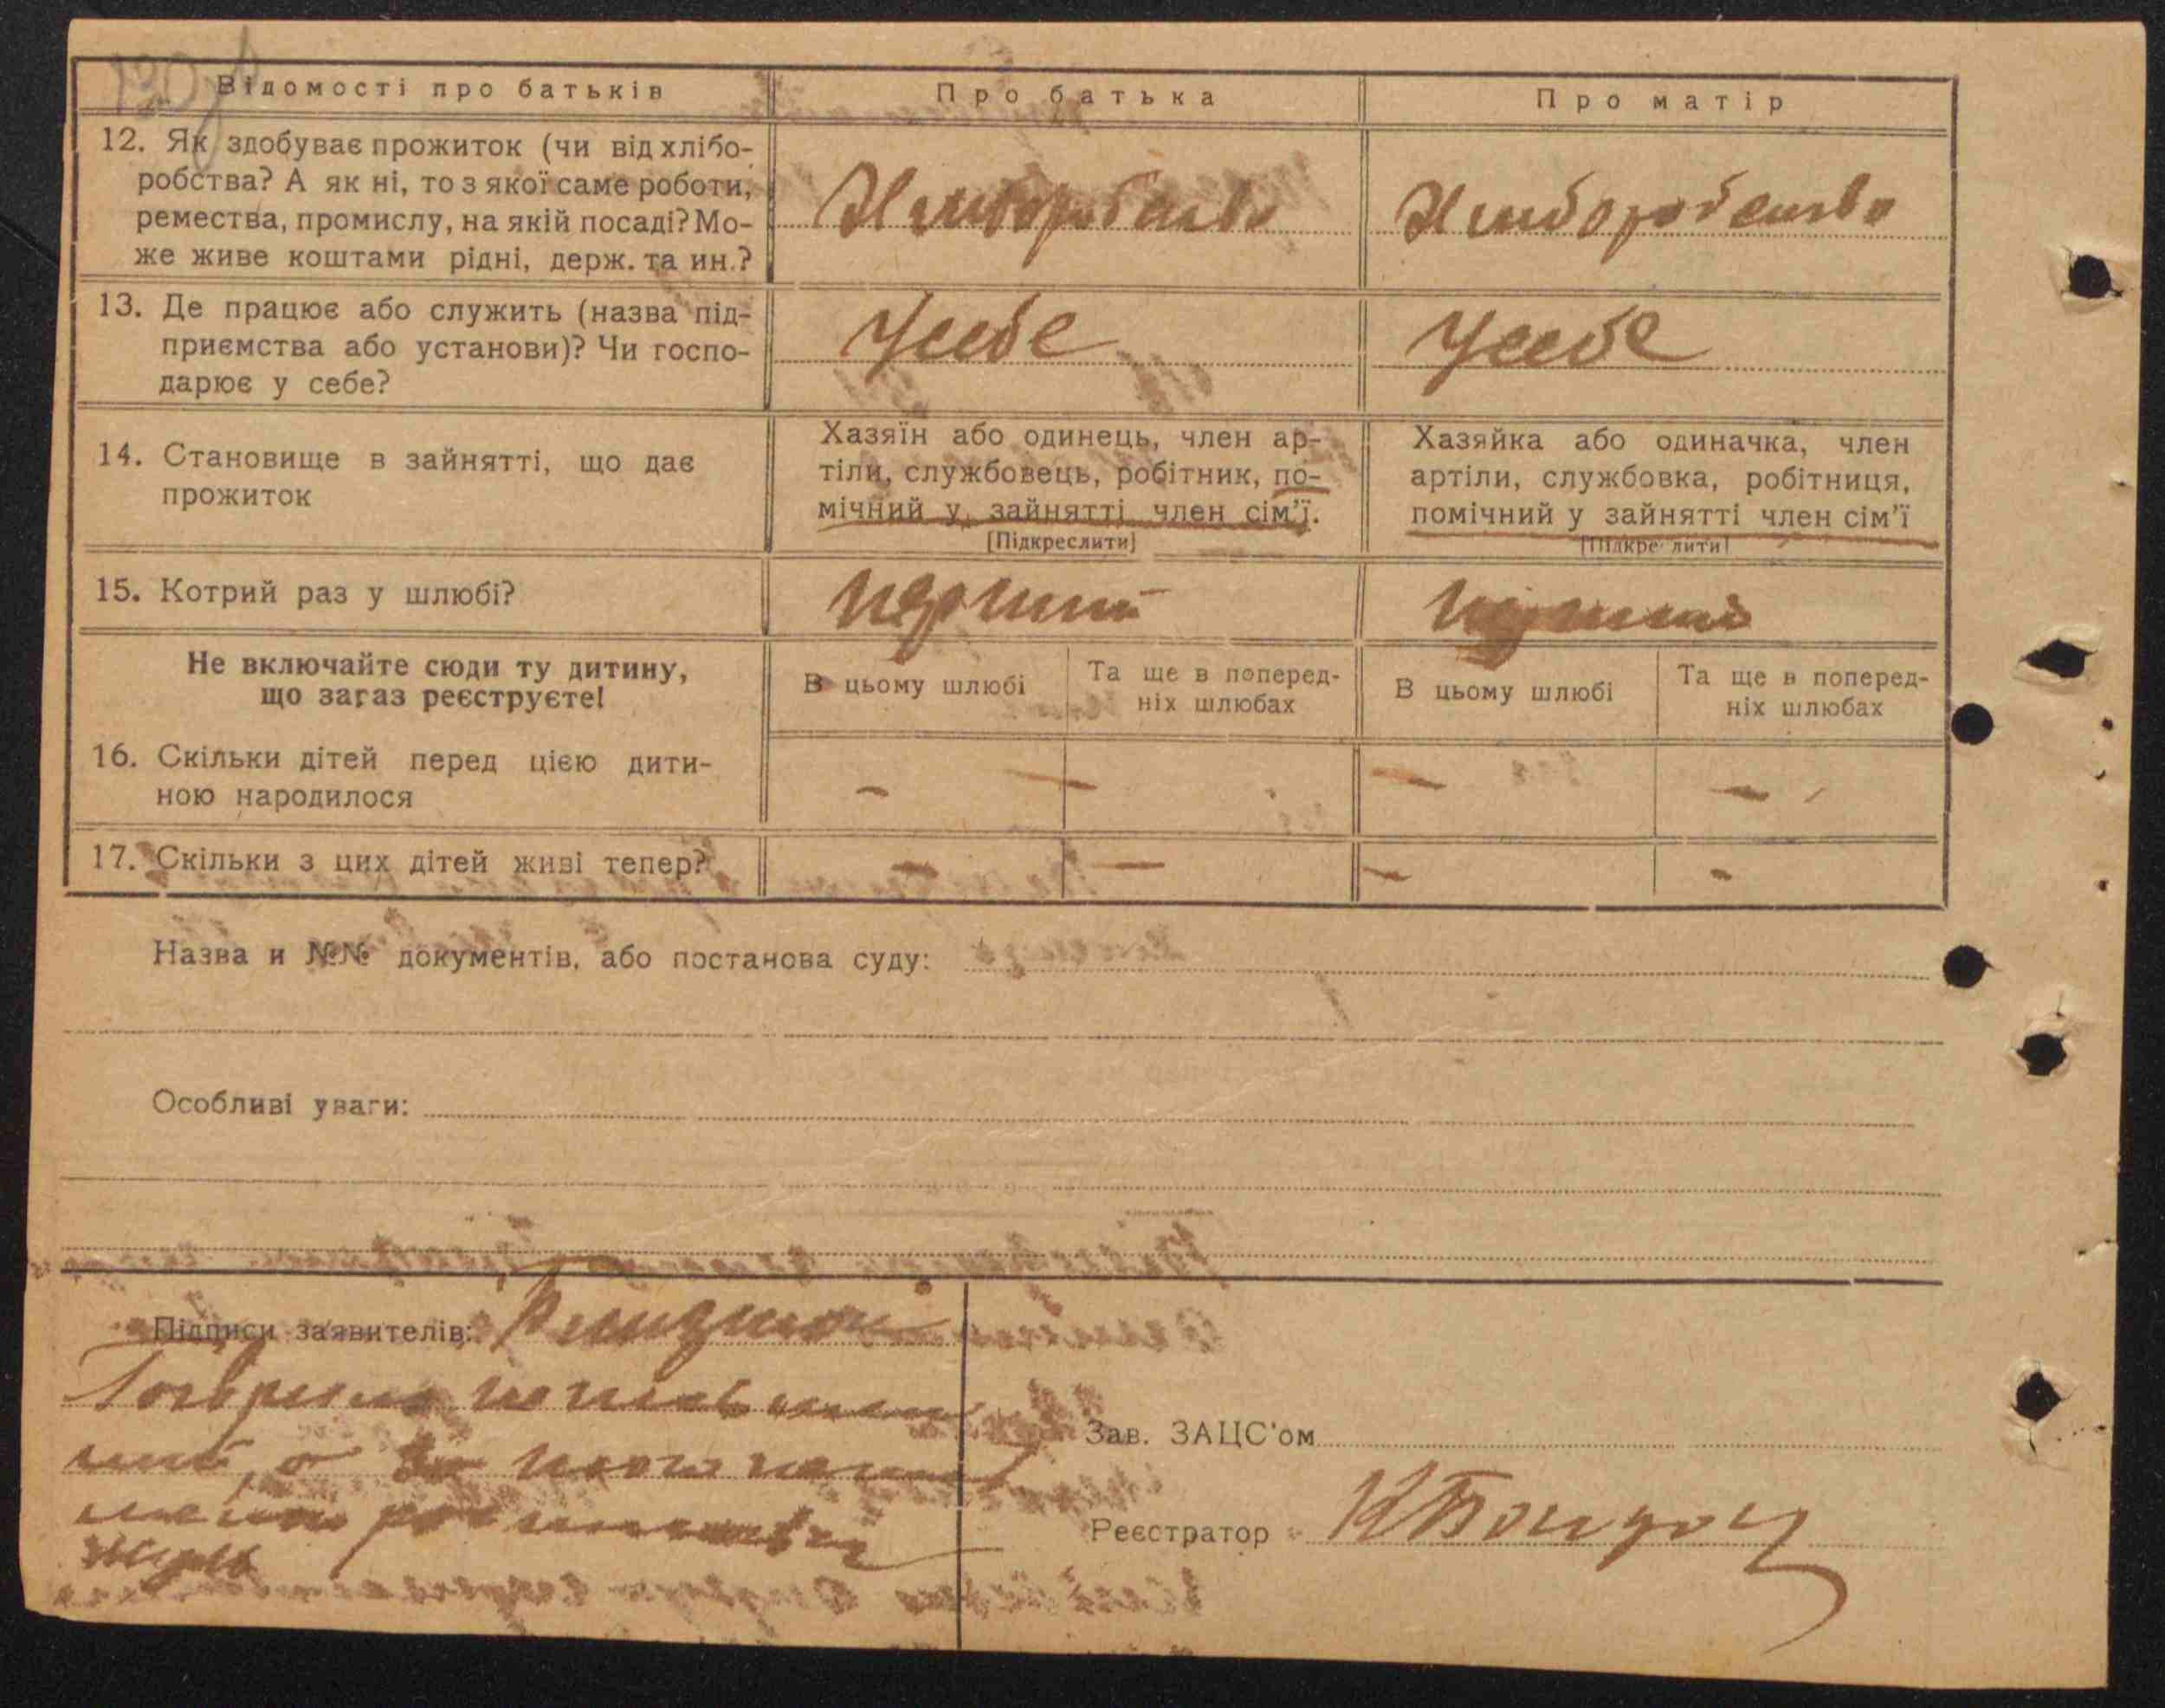 Відомості про батьків
Про батька
Про матір
12. Як здобуває прожиток (чи від хлібо-
робства? А як ні, то з якої саме роботи,
ремества, промислу, на якій посаді? Мо-
же живе коштами рідні, держ. та ин.?
Хліборобство
Хліборобство
13. Де працює або служить (назва під-
приємства або установи)? Чи госпо-
дарює у себе?
У себе
У себе
14. Становище в зайнятті, що дає
прожиток
Хазяїн або одинець, член ар-
тіли, службовець, робітник, по-
мічний у зайнятті член сім'ї.
[Підкреслити]
Хазяйка або одиначка, член
артіли, службовка, робітниця,
помічний у зайнятті член сім'ї
[Підкреслити]
15. Котрий раз у шлюбі?
перший
перший
Не включайте сюди ту дитину,
що зараз реєструєте!
В цьому шлюбі
Та ще в поперед-
ніх шлюбах
В цьому шлюбі
Та ще в поперед-
ніх шлюбах
16. Скільки дітей перед цією дити-
ною народилося
– – – –
17. Скільки з цих дітей живі тепер?
– – – –
Назва и №№ документів, або постанова суду:
Особливі уваги:
Підписи заявителів:
Зав. ЗАЦС'ом
Реєстратор